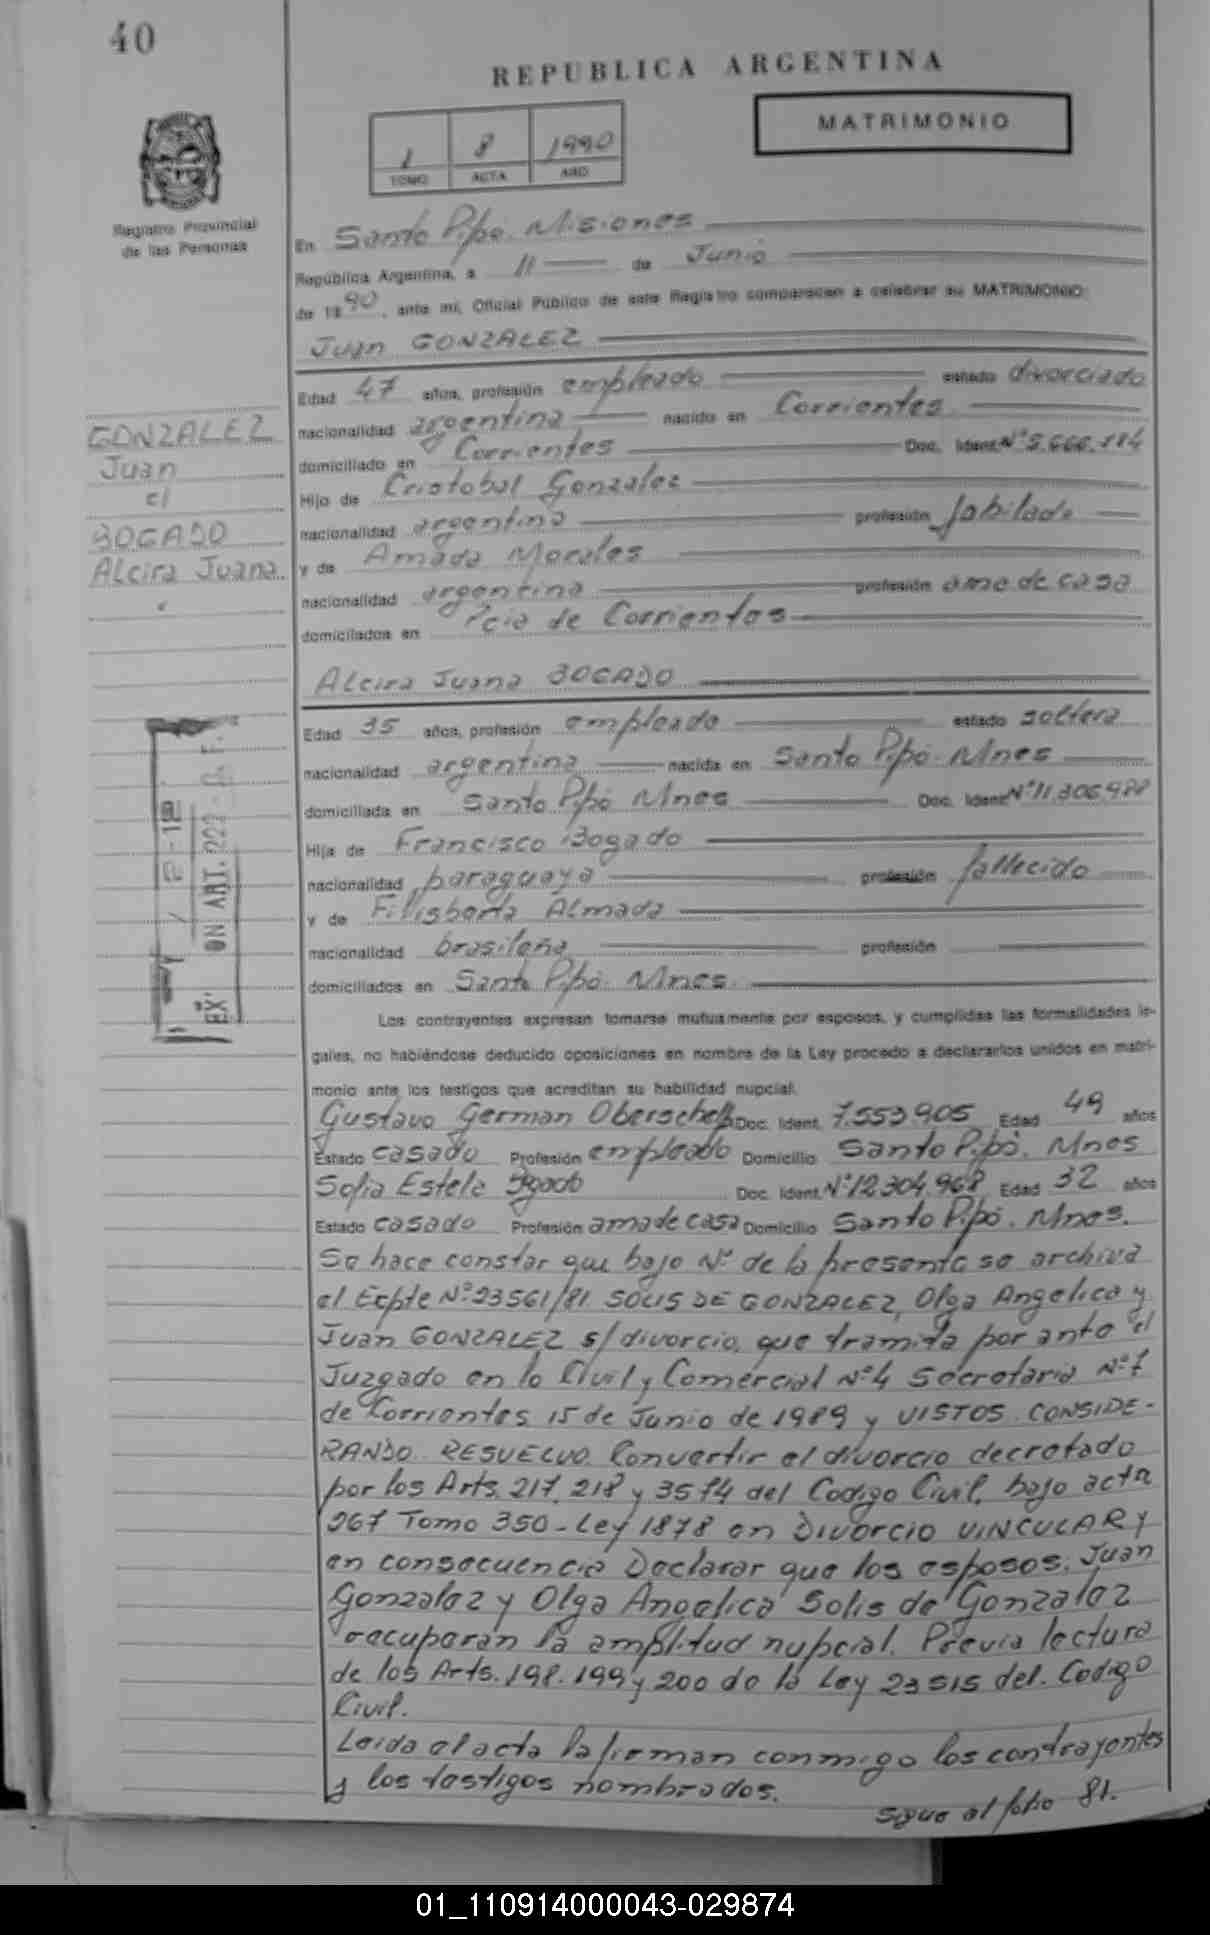 40
REPUBLICA ARGENTINA
MATRIMONIO
1 8 1990
TOMO ACTA AÑO
Registro Provincial
de las Personas
En Santo Pipó. Misiones
República Argentina, a 11 de Junio
de 1990, ante mí, Oficial Público de este Registro comparecen a celebrar su MATRIMONIO:
Juan GONZALEZ
Edad 47 años, profesión empleado estado divorciado
nacionalidad argentina nacido en Corrientes
domiciliado en Corrientes Doc. Ident. Nº 5.666.184
Hijo de Cristobal Gonzalez
nacionalidad argentina profesión Jubilado
y de Amada Morales
nacionalidad argentina profesión ama de casa
domiciliados en Pcia de Corrientes
GONZALEZ
Juan
c/
BOGADO
Alcira Juana
Alcira Juana BOGADO
Edad 35 años, profesión empleado estado soltera
nacionalidad argentina nacida en Santo Pipó. Mnes
domiciliada en Santo Pipó Mnes Doc. Ident. Nº 11.306.988
Hija de Francisco Bogado
nacionalidad paraguaya profesión fallecido
y de Filisberta Almada
nacionalidad brasileña profesión
domiciliados en Santo Pipó. Mnes.
ON ART. 222
Los contrayentes expresan tomarse mutuamente por esposos, y cumplidas las formalidades le-
gales, no habiéndose deducido oposiciones en nombre de la Ley procedo a declararlos unidos en matri-
monio ante los testigos que acreditan su habilidad nupcial.
Gustavo German Doc. Ident. 7.553.905 Edad 49 años
Estado casado Profesión empleado Domicilio Santo Pipó. Mnes
Sofia Estela Doc. Ident. Nº 12.304.968 Edad 32 años
Estado casado Profesión ama de casa Domicilio Santo Pipó. Mnes.
Se hace constar que bajo Nº de la presente se archiva
el Ecpte Nº 23561/81 SOLIS DE GONZALEZ, Olga Angelica y
Juan GONZALEZ s/divorcio, que tramita por ante el
Juzgado en lo Civil y Comercial Nº 4 Secretaria Nº 7
de Corrientes 15 de Junio de 1989 y VISTOS. CONSIDE-
RANDO. RESUELVO. Convertir el divorcio decretado
por los Arts. 217, 218 y 3574 del Codigo Civil, bajo acta
267 Tomo 350-Ley 1878 en DIVORCIO VINCULAR y
en consecuencia Declarar que los esposos, Juan
Gonzalez y Olga Angelica Solis de Gonzalez
recuperan la amplitud nupcial. Previa lectura
de los Arts. 198. 199 y 200 de la Ley 23515 del. Codigo
Civil.
Leida el acta la firman conmigo los contrayentes
y los testigos nombrados.
sigue al folio 81.
01_110914000043-029874